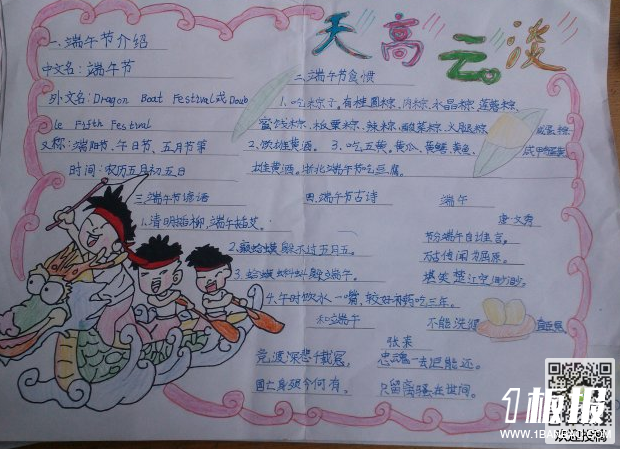 天高云淡
一、端午节介绍
中文名:端午节
外文名:Dragon Boat Festival或Doub
le Fifth Festival
又称:端阳节、午日节、五月节等
时间:农历五月初五日
二、端午节食惯
1、吃粽子。有桂圆粽、肉粽、水晶粽、莲蓉粽、
蜜饯粽、板栗粽、辣粽、酸菜粽、火腿粽、
咸蛋粽
2、饮雄黄酒。3、吃五黄、黄瓜、黄鳝、黄鱼、
咸鸭蛋
雄黄酒。
端午节吃豆腐。
三、端午节谚语
1、清明插柳,端午插艾。
2、癞蛤蟆躲不过五月五。
3、蛤蟆蝌蚪躲端午。
4、午时饮水一嘴,较好补药吃三年。
四、端午节古诗
端午
唐 文秀
节分端午自谁言。
万古传闻为屈原。
堪笑楚江空渺渺。
不能洗得
和端午
张耒
竞渡深悲千载冤。
忠魂一去讵能还。
国亡身殒今何有。
只留离骚在世间。
1板报
WWW.1BANBAO.COM
欢迎投稿